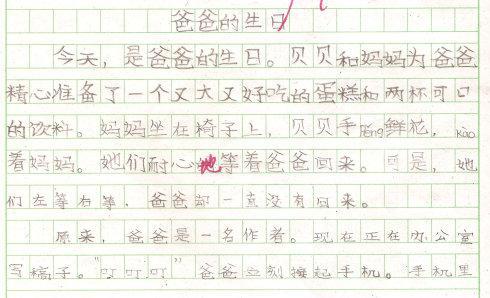 爸爸的生日
今天，是爸爸的生日。贝贝和妈妈为爸爸
精心准备了一个又大又好吃的蛋糕和两杯可口
的饮料。妈妈坐在椅子上，贝贝手pěng鲜花，kào
着妈妈。她们耐心地等着爸爸回来。可是，她
们左等右等，爸爸却一直没有回来。
原来，爸爸是一名作者。现在正在办公室
写稿子。“叮叮叮”爸爸立刻接起手机。手机里